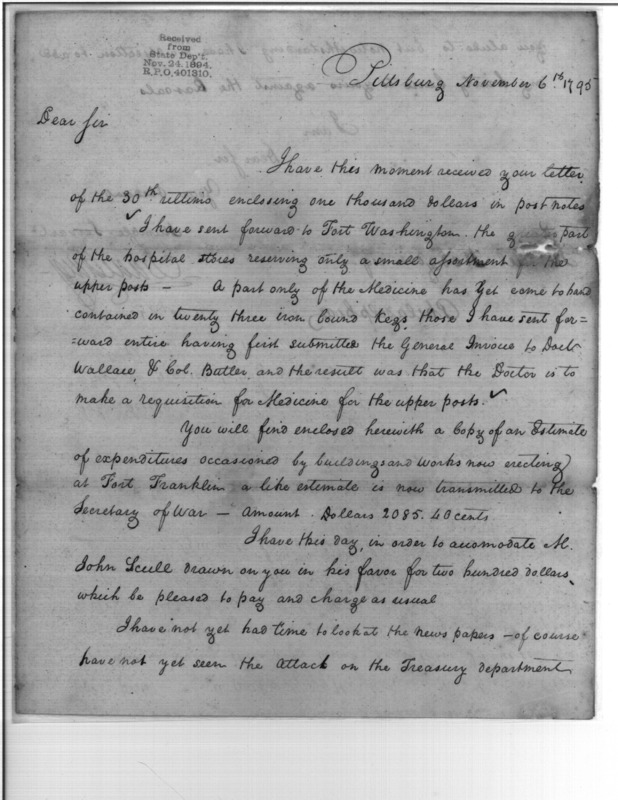 Received
from
State Dep't.
Nov. 24. 1894.
R.P.O. 401310.
Pittsburg November 6th 1795
Dear Sir
I have this moment received your letter
of the 30th ultimo enclosing one thousand dollars in post notes
I have sent forward to Fort Washington the part
of the hospital stores reserving only a small assortment for the
upper posts – A part only of the Medicine has yet come to hand
contained in twenty three iron bound Kegs those I have sent for=
=ward entire having first submitted the General Invoice to Doctr
Wallace & Col. Butler and the result was that the Doctor is to
make a requisition for Medicine for the upper posts.
You will find enclosed herewith a Copy of an Estimate
of expenditures occasioned by buildings and works now erecting
at Fort Franklin a like estimate is now transmitted to the
Secretary of War – amount. Dollars 2085. 40 cents
I have this day, in order to accomodate M.
John Scull drawn on you in his favor for two hundred dollars,
which be pleased to pay and charge as usual
I have not yet had time to look at the news papers – of course
have not yet seen the attack on the Treasury department